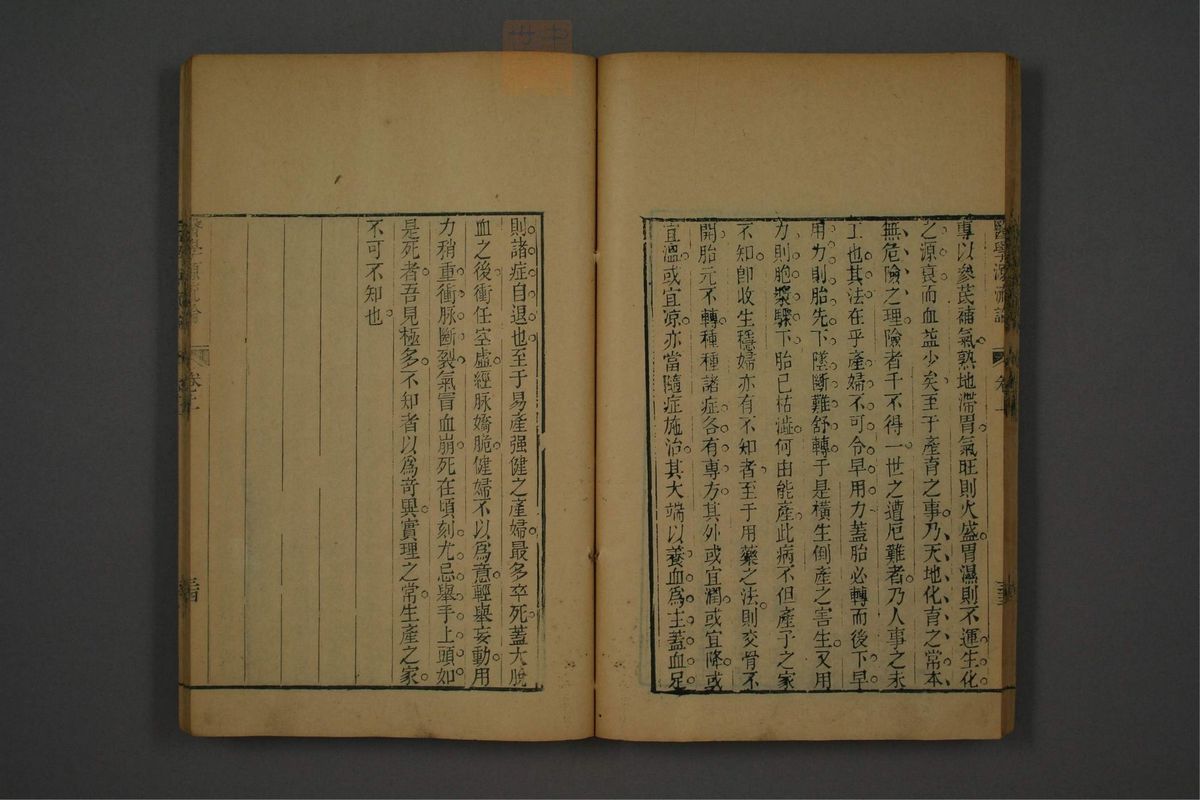 專以參芪補氣熟地滯胃氣旺則火盛胃濕則不運生化
之源衰而血益少矣至于產育之事乃天地化育之常本
無危險之理險者千不得一世之遭厄難者乃人事之未
工也其法在乎產婦不可令早用力蓋胎必轉而後下早
用力則胎先下墜斷難舒轉于是橫生倒產之害生又用
力則胞漿驟下胎已枯澁何由能產此病不但產子之家
不知卽收生穩婦亦有不知者至于用藥之法則交骨不
開胎元不轉種種諸症各有專方其外或宜潤或宜降或
宜溫或宜凉亦當隨症施治其大端以養血爲主蓋血足
則諸症自退也至于易產强健之產婦最多卒死蓋大脫
血之後衝任空虛經脉嬌脆健婦不以爲意輕舉妄動用
力稍重衝脉斷裂氣冒血崩死在頃刻尤忌舉手上頭如
是死者吾見極多不知者以爲奇異實理之常生產之家
不可不知也